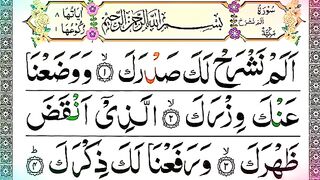 سُوْرَةُ اَلَمْ نَشْرَحْ مَكِّيَّةٌ
بِسْمِ اللّٰهِ الرَّحْمٰنِ الرَّحِيْمِ
اٰيَاتُهَا ٨ رُكُوْعُهَا ١
اَلَمْ نَشْرَحْ لَكَ صَدْرَكَ ۙ﴿١﴾ وَوَضَعْنَا
عَنْكَ وِزْرَكَ ۙ﴿٢﴾ الَّذِيْٓ اَنْقَضَ
ظَهْرَكَ ۙ﴿٣﴾ وَرَفَعْنَا لَكَ ذِكْرَكَ ؕ﴿٤﴾